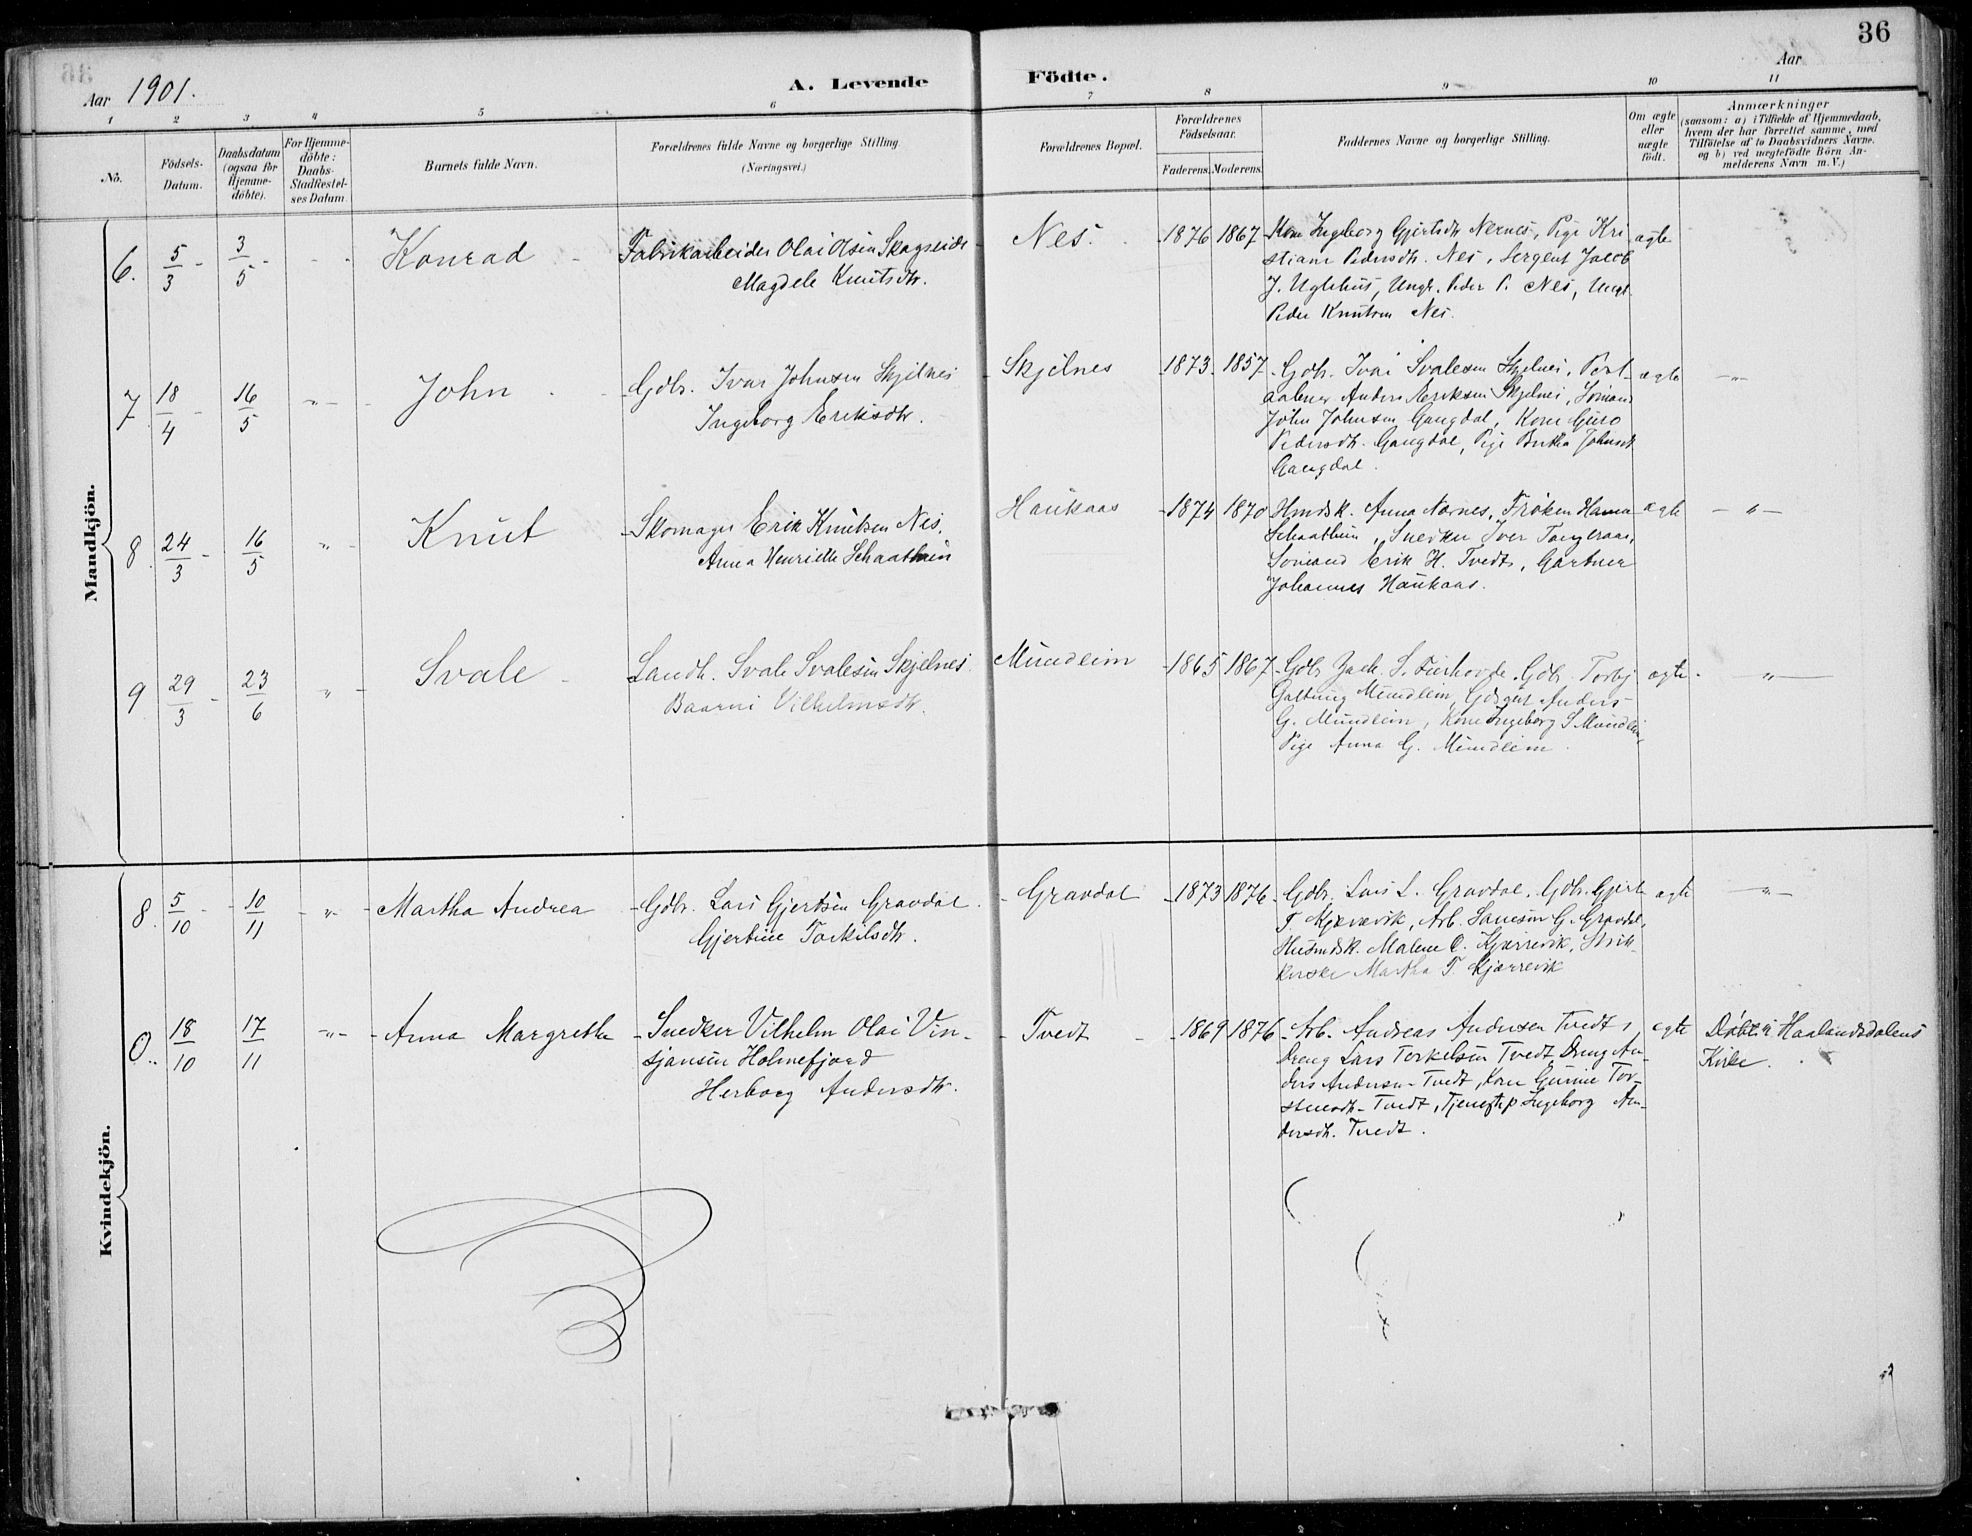 36
Aar 1901.
A. Levende Födte.
Aar
1 2 3 4 5 6 7 8 9 10 11
No.
Födsels-Datum.
Daabsdatum (ogsaa for Hjemme-döbte).
For Hjemme-döbte: Daabs-Stadfæstel-ses Datum.
Barnets fulde Navn.
Forældrenes fulde Navne og borgerlige Stilling
(Næringsvei.)
Forældrenes Bopæl.
Forældrenes Födselsaar.
Faderens. Moderens.
Faddernes Navne og borgerlige Stilling.
Om ægte eller uægte födt.
Anmærkninger
(saasom: a) i Tilfælde af Hjemmedaab,
hvem der har forrettet samme, med
Tilföielse af to Daabsvidners Navne.
og b) ved uægtefödte Börn An-
melderens Navn m.V.)
Mandkjön.
6. 5/3 - 3/5 - - - Konrad - Fabrikarbeider Olai Olsen Skogseide Nes. 1876 1867 Kone Ingeborg Gjertsdtr Nernes, Pige Kri ægte
Magdele Knutsdtr. stiane Pedersdtr. Nes, Sergent Jacob
J. Uglehus, Ungk. Peder P. Nes, Ungk.
Peder Knutsen Nes.
7 18/4 - 16/5 -"- John - Gdbr. Ivar Johnsen Skjelnes - Skjelnes 1873 1857 Gdbr. Ivar Svalesen Skjelnes, Post- ægte -"-
Ingeborg Eriksdtr. aabner Anders Eriksen Skjelnes, Sömand
John Johnsen Gangdal, Kone Guro
Pedersdtr. Gangdal, Pige Brita Johnsdtr
Gangdal.
8. 24/3 - 16/5 " - Knut - Skomager Erik Knutsen Nes. Haukaas 1874 1870 Hmdsk. Anna Nernes, Fröken Hanna ægte -"-
Anna Henriette Schaathun Schaathun, Snedker Iver Tangeraas,
Sömand Erik H. Tvedt, Gartner
Johannes Haukaas.
9 29/3 - 23/6 " - Svale - Landh. Svale Svalesen Skjelnes. Mundheim 1865 1867 Gdbr Zach. S. Gdbr. Torbj ægte - "
Vilhelmsdtr. Galtung Mundheim, Anders
G. Mundheim, Kone Ingeborg S Mundheim,
Pige Anna G. Mundheim.
Kvindekjön.
8. 5/10 - 10/11 -"- Martha Andrea - Gdbr. Lars Gjertsen Gravdal. - Gravdal 1873 1876 Gdbr. Lars L. Gravdal, Gdbr. Gjert ægte -"-
Gjertine Torkilsdtr. T. Kjærevik, Arb. Samson G. Gravdal,
Husmdsk. Malene O. Kjærrevik, Strik-
kerske Martha T. Kjærrevik
0.. 18/10 17/11 -"- Anna Margrethe - Snedker Vilhelm Olai Vin- - Tvedt - 1869 1876 Arb. Andreas Andersen Tvedt, ægte Döbt i Haalandsdalens
sjansen Holmefjord Dreng Lars Torkelsen Tvedt Dreng An- Kirke.
Herborg Andersdtr. ders Andersen Tvedt, Kone Gurine Tor-
stensdtr. Tvedt, Tjenestep Ingeborg An-
dersdtr. Tvedt.